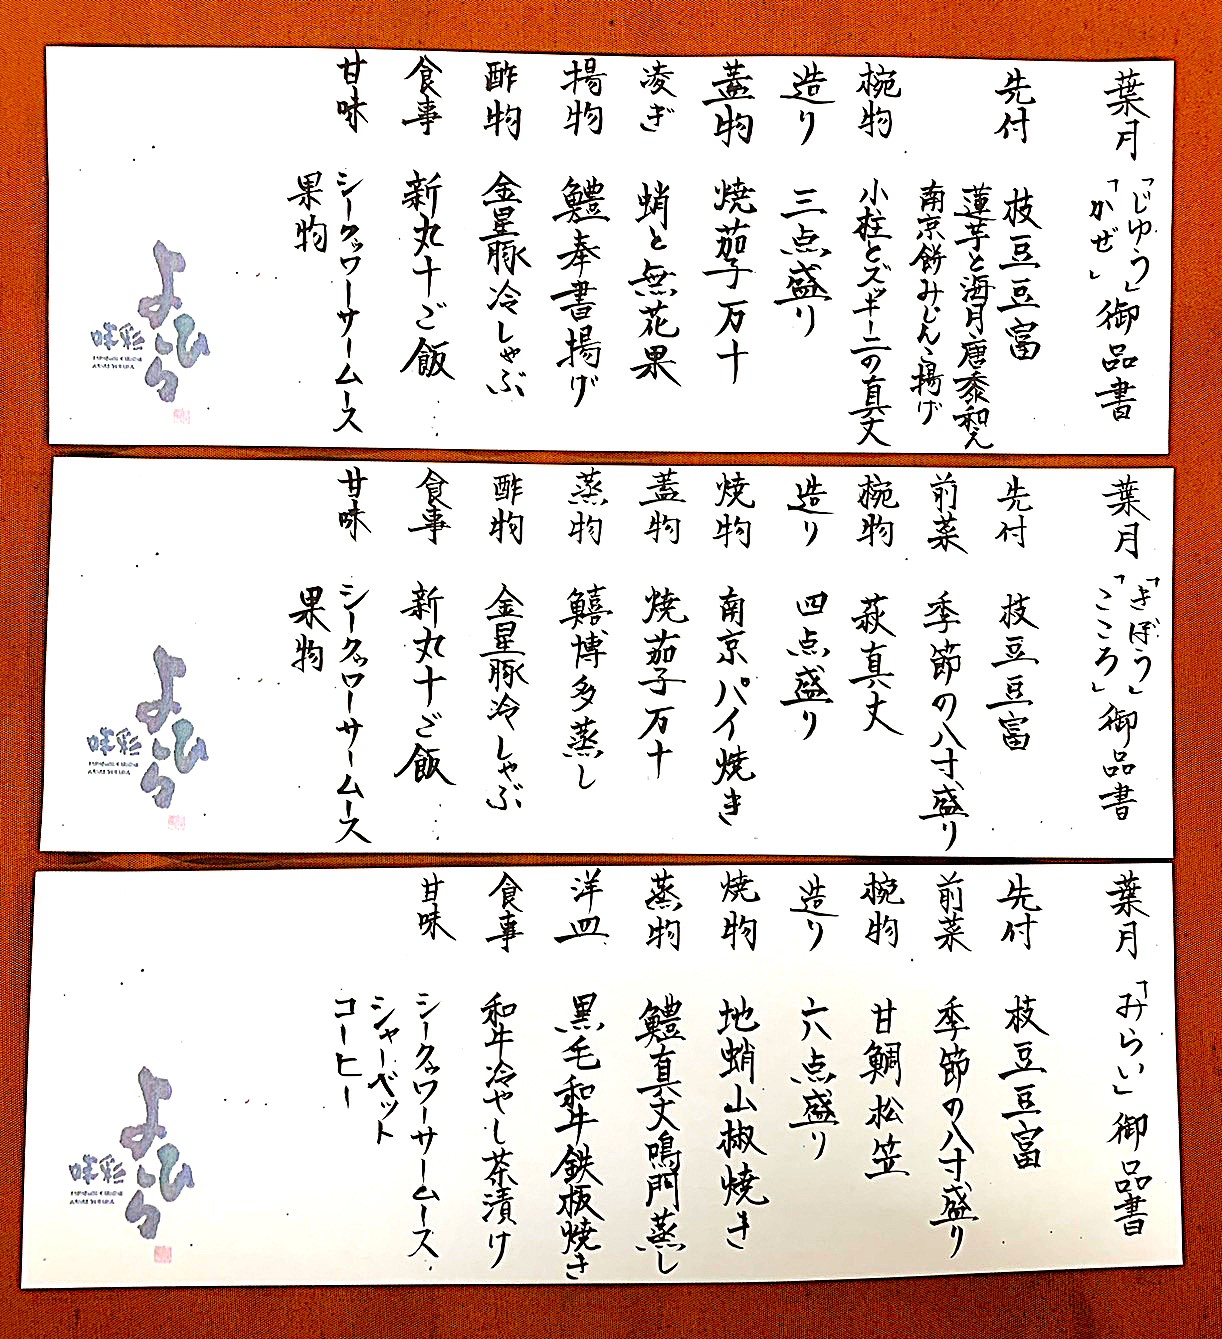 葉月「じゆう」「かぜ」御品書
先付 枝豆豆富
蓮芋と海月唐黍和え
南京餅みじんこ揚げ
椀物 小柱とズッキーニの真丈
造り 三点盛り
蓋物 焼茄子万十
凌ぎ 蛸と無花果
揚物 鱧奉書揚げ
酢物 金星豚冷しゃぶ
食事 新丸十ご飯
甘味 シークヮーサームース
果物
よひら
葉月「きぼう」「こころ」御品書
先付 枝豆豆富
前菜 季節の八寸盛り
椀物 萩真丈
造り 四点盛り
焼物 南京パイ焼き
蓋物 焼茄子万十
蒸物 鱚博多蒸し
酢物 金星豚冷しゃぶ
食事 新丸十ご飯
甘味 シークヮーサームース
果物
よひら
葉月「みらい」御品書
先付 枝豆豆富
前菜 季節の八寸盛り
椀物 甘鯛松笠
造り 六点盛り
焼物 地蛸山椒焼き
蒸物 鱧真丈鳴門蒸し
洋皿 黒毛和牛鉄板焼き
食事 和牛冷やし茶漬け
甘味 シークヮーサームース
シャーベット
コーヒー
よひら